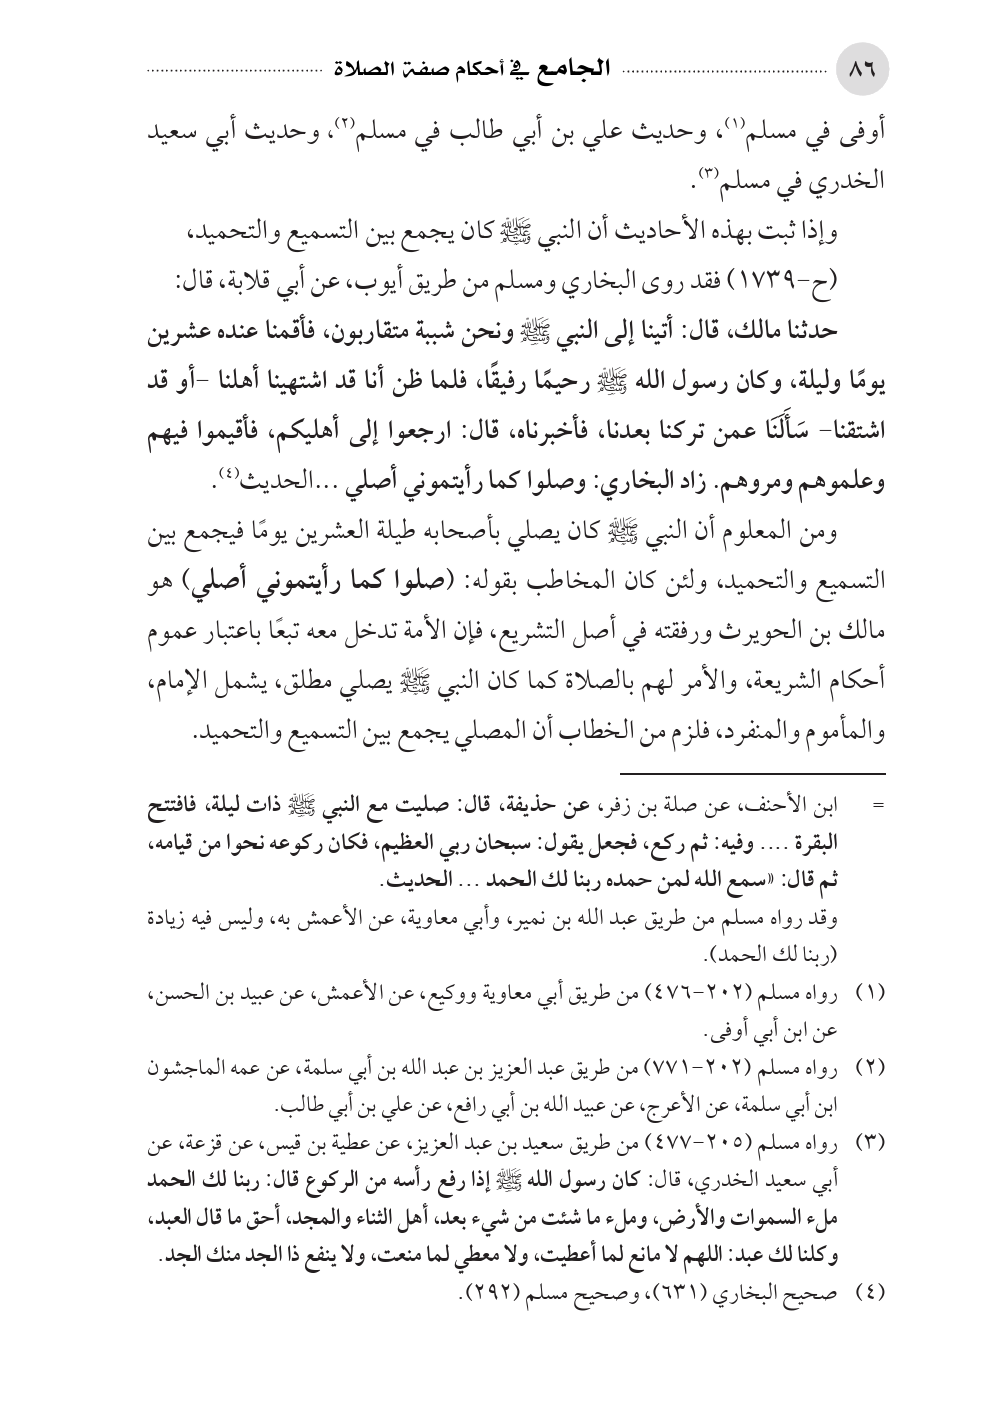 ٨٦ الجامع في أحكام صفة الصلاة
أوفى في مسلم(١)، وحديث علي بن أبي طالب في مسلم(٢)، وحديث أبي سعيد
الخدري في مسلم(٣).
وإذا ثبت بهذه الأحاديث أن النبي ﷺ كان يجمع بين التسميع والتحميد،
(ح-١٧٣٩) فقد روى البخاري ومسلم من طريق أيوب، عن أبي قلابة، قال:
حدثنا مالك، قال: أتينا إلى النبي ﷺ ونحن شببة متقاربون، فأقمنا عنده عشرين
يومًا وليلة، وكان رسول الله ﷺ رحيمًا رفيقًا، فلما ظن أنا قد اشتهينا أهلنا -أو قد
اشتقنا- سَأَلَنَا عمن تركنا بعدنا، فأخبرناه، قال: ارجعوا إلى أهليكم، فأقيموا فيهم
وعلموهم ومروهم. زاد البخاري: وصلوا كما رأيتموني أصلي ...الحديث(٤).
ومن المعلوم أن النبي ﷺ كان يصلي بأصحابه طيلة العشرين يومًا فيجمع بين
التسميع والتحميد، ولئن كان المخاطب بقوله: (صلوا كما رأيتموني أصلي) هو
مالك بن الحويرث ورفقته في أصل التشريع، فإن الأمة تدخل معه تبعًا باعتبار عموم
أحكام الشريعة، والأمر لهم بالصلاة كما كان النبي ﷺ يصلي مطلق، يشمل الإمام،
والمأموم والمنفرد، فلزم من الخطاب أن المصلي يجمع بين التسميع والتحميد.
= ابن الأحنف، عن صلة بن زفر، عن حذيفة، قال: صليت مع النبي ﷺ ذات ليلة، فافتتح
البقرة .... وفيه: ثم ركع، فجعل يقول: سبحان ربي العظيم، فكان ركوعه نحوا من قيامه،
ثم قال: «سمع الله لمن حمده ربنا لك الحمد ... الحديث.
وقد رواه مسلم من طريق عبد الله بن نمير، وأبي معاوية، عن الأعمش به، وليس فيه زيادة
(ربنا لك الحمد).
(١) رواه مسلم (٢٠٢-٤٧٦) من طريق أبي معاوية ووكيع، عن الأعمش، عن عبيد بن الحسن،
عن ابن أبي أوفى.
(٢) رواه مسلم (٢٠٢-٧٧١) من طريق عبد العزيز بن عبد الله بن أبي سلمة، عن عمه الماجشون
ابن أبي سلمة، عن الأعرج، عن عبيد الله بن أبي رافع، عن علي بن أبي طالب.
(٣) رواه مسلم (٢٠٥-٤٧٧) من طريق سعيد بن عبد العزيز، عن عطية بن قيس، عن قزعة، عن
أبي سعيد الخدري، قال: كان رسول الله ﷺ إذا رفع رأسه من الركوع قال: ربنا لك الحمد
ملء السموات والأرض، وملء ما شئت من شيء بعد، أهل الثناء والمجد، أحق ما قال العبد،
وكلنا لك عبد: اللهم لا مانع لما أعطيت، ولا معطي لما منعت، ولا ينفع ذا الجد منك الجد.
(٤) صحيح البخاري (٦٣١)، وصحيح مسلم (٢٩٢).